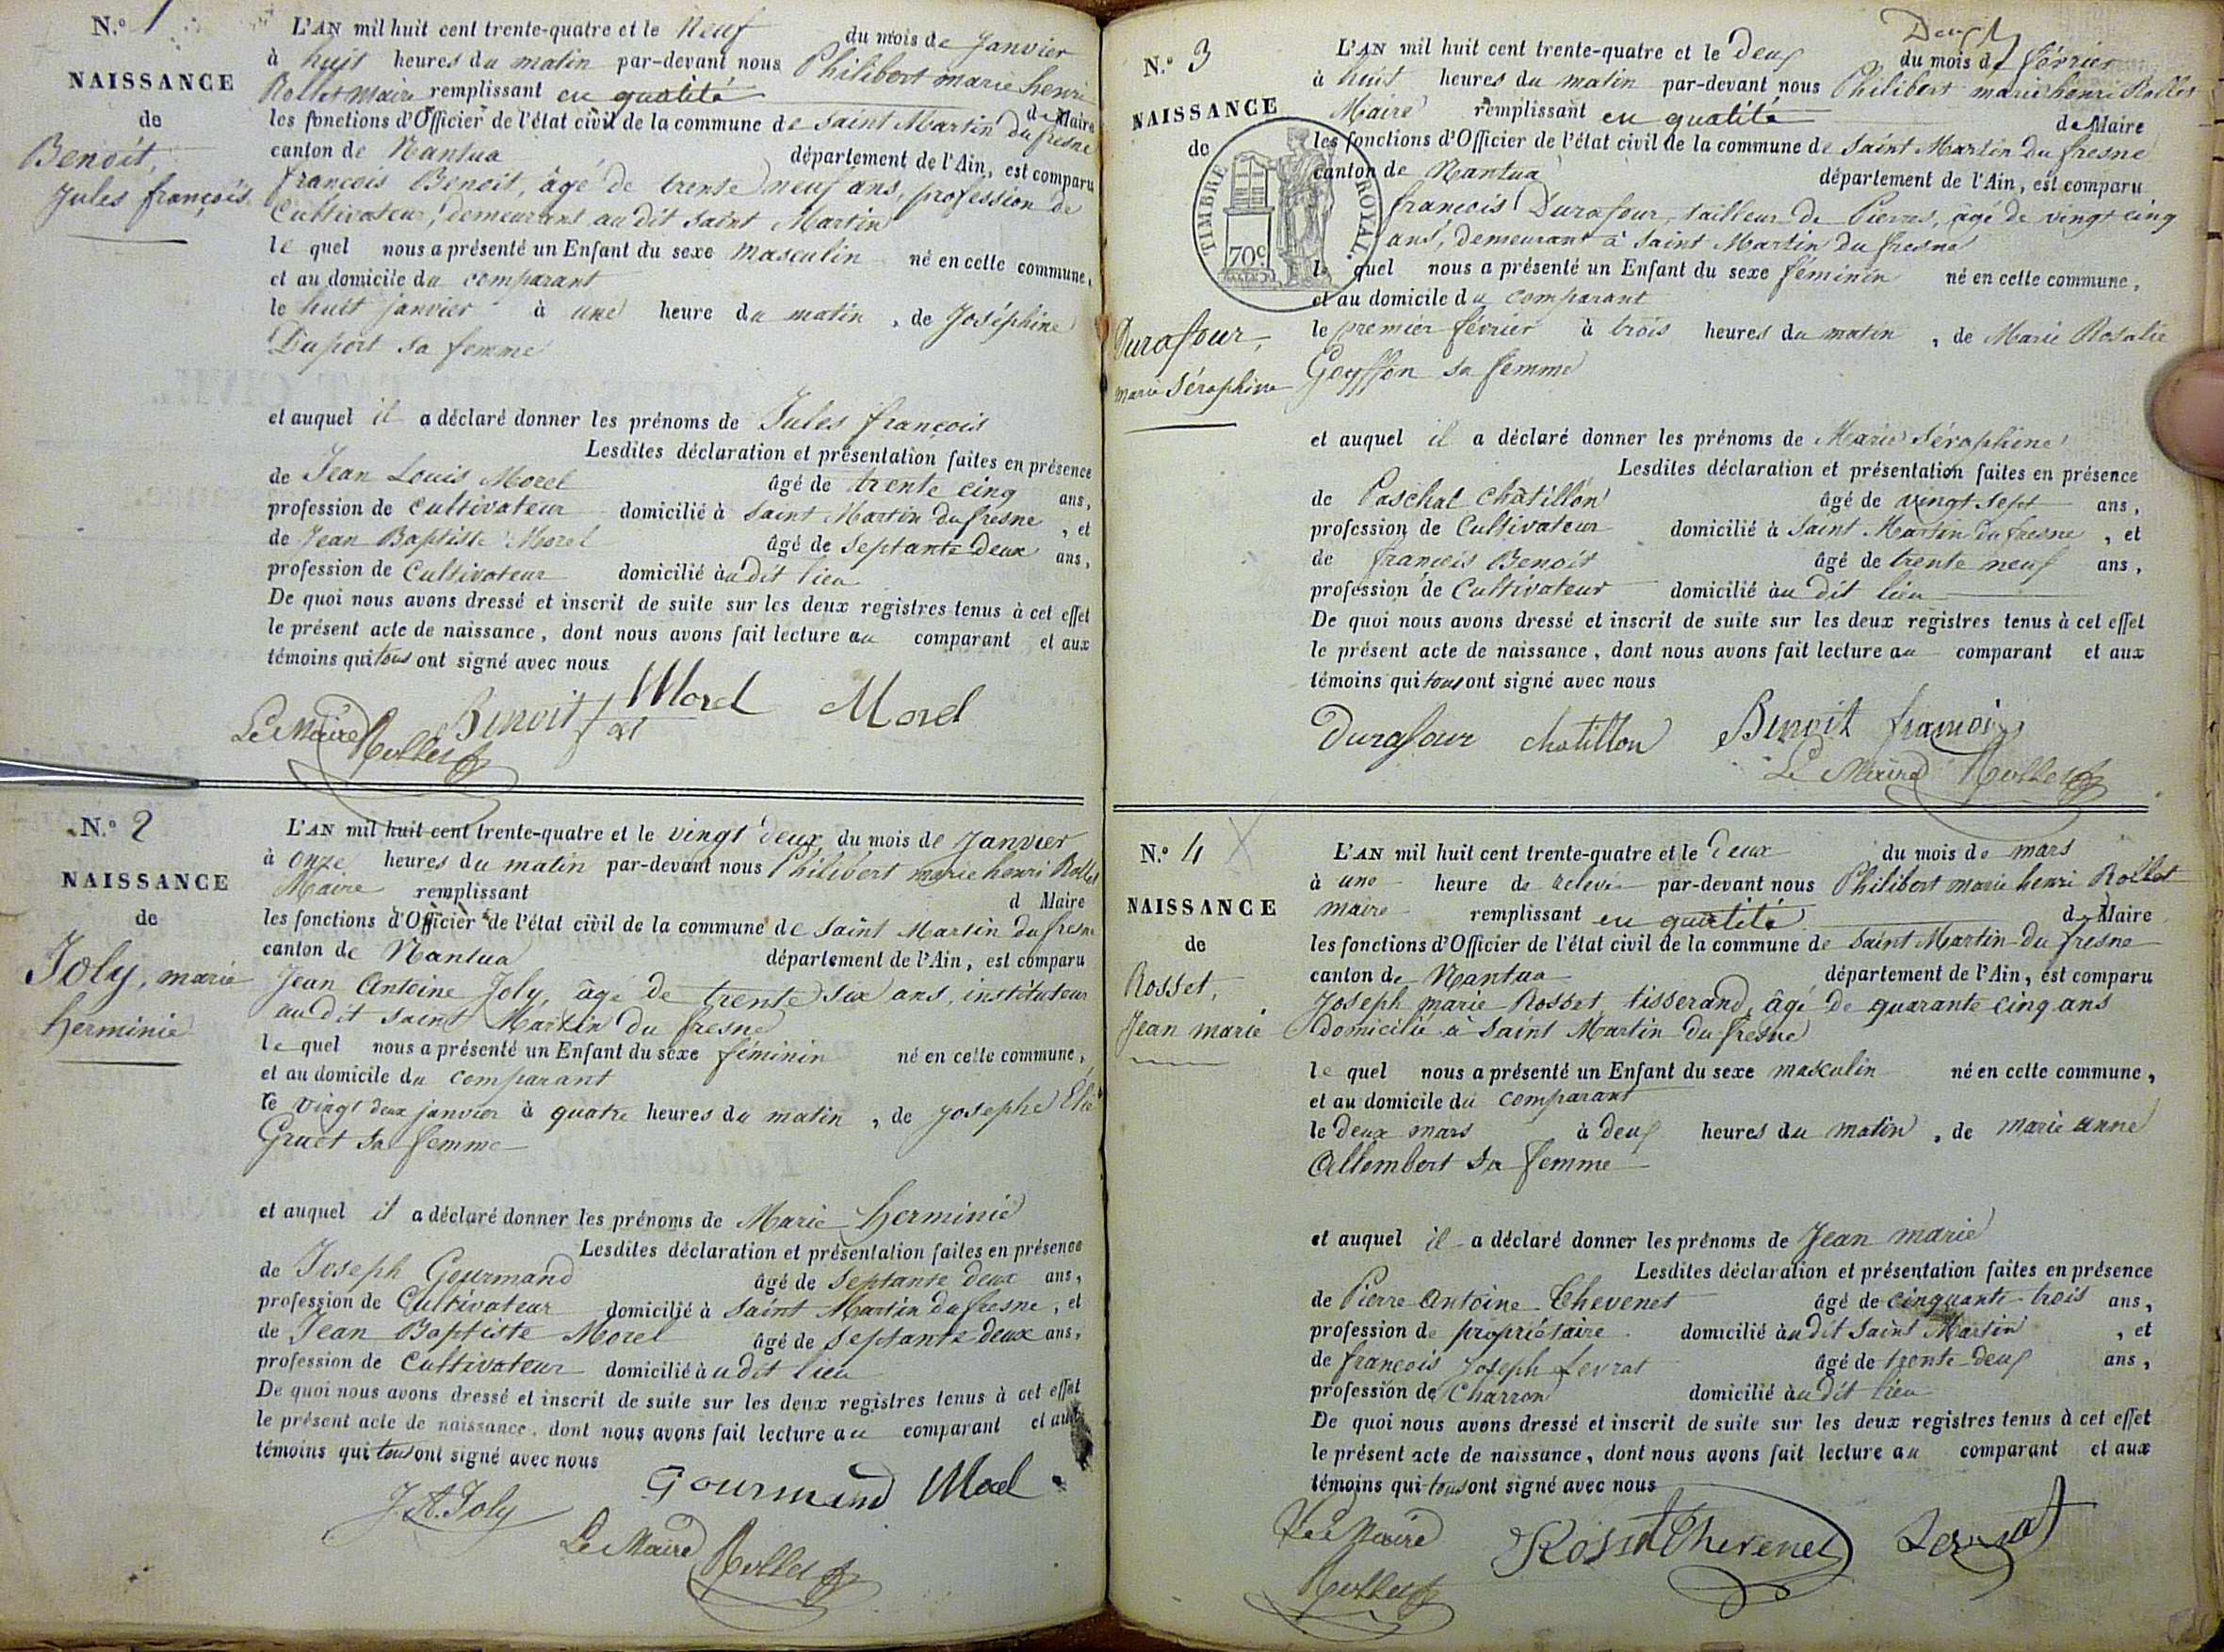 N.º 1
NAISSANCE
de
Benoit,
Jules françois
L'AN mil huit cent trente-quatre et le neuf du mois de Janvier
à huit heures du matin par-devant nous Philibert marie henri
Rollet Maire remplissant en qualité de Maire
les fonctions d'Officier de l'état civil de la commune de Saint Martin du fresne
canton de Nantua département de l'Ain, est comparu
françois Benoit, âgé de trente neuf ans, profession de
Cultivateur, demeurant au dit Saint Martin
le quel nous a présenté un Enfant du sexe masculin né en cette commune,
et au domicile du comparant
le huit janvier à une heure du matin, de Joséphine
Duport sa femme
et auquel il a déclaré donner les prénoms de Jules françois
Lesdites déclaration et présentation faites en présence
de Jean Louis Morel âgé de trente cinq ans,
profession de Cultivateur domicilié à Saint Martin du fresne, et
de Jean Baptiste Morel âgé de Septante deux ans,
profession de Cultivateur domicilié au dit lieu
De quoi nous avons dressé et inscrit de suite sur les deux registres tenus à cet effet
le présent acte de naissance, dont nous avons fait lecture au comparant et aux
témoins qui tous ont signé avec nous
Le Maire Rollet Benoit Morel Morel
N.º 2
NAISSANCE
de
Joly, marie
herminie
L'AN mil huit cent trente-quatre et le vingt deux du mois de Janvier
à onze heures du matin par-devant nous Philibert marie henri Rollet
Maire remplissant d Maire
les fonctions d'Officier de l'état civil de la commune de Saint Martin du fresne
canton de Nantua département de l'Ain, est comparu
Jean Antoine Joly, âgé de trente six ans, instituteur
au dit Saint Martin du fresne
le quel nous a présenté un Enfant du sexe féminin né en cette commune,
et au domicile du comparant
le vingt deux janvier à quatre heures du matin, de Josephe
Gruet sa femme
et auquel il a déclaré donner les prénoms de Marie herminie
Lesdites déclaration et présentation faites en présence
de Joseph Gourmand âgé de Septante deux ans,
profession de Cultivateur domicilié à Saint Martin du fresne, et
de Jean Baptiste Morel âgé de Septante deux ans,
profession de Cultivateur domicilié au dit lieu
De quoi nous avons dressé et inscrit de suite sur les deux registres tenus à cet effet
le présent acte de naissance, dont nous avons fait lecture au comparant et aux
témoins qui tous ont signé avec nous
J. A. Joly Gourmand Morel
Le Maire Rollet
N.º 3
NAISSANCE
de
TIMBRE ROYAL.
70c
Durafour,
marie Séraphine
Deux
L'AN mil huit cent trente-quatre et le deux du mois de février
à huit heures du matin par-devant nous Philibert marie henri Rollet
Maire remplissant en qualité de Maire
les fonctions d'Officier de l'état civil de la commune de Saint Martin du fresne
canton de Nantua département de l'Ain, est comparu
françois Durafour, tailleur de Pierres, âgé de vingt cinq
ans, demeurant à Saint Martin du fresne
le quel nous a présenté un Enfant du sexe féminin né en cette commune,
et au domicile du comparant
le premier février à trois heures du matin, de Marie Rosalie
Goyffon sa femme
et auquel il a déclaré donner les prénoms de Marie Séraphine
Lesdites déclaration et présentation faites en présence
de Paschal Châtillon âgé de vingt sept ans,
profession de Cultivateur domicilié à Saint Martin du fresne, et
de françois Benoit âgé de trente neuf ans,
profession de Cultivateur domicilié au dit lieu
De quoi nous avons dressé et inscrit de suite sur les deux registres tenus à cet effet
le présent acte de naissance, dont nous avons fait lecture au comparant et aux
témoins qui tous ont signé avec nous
Durafour chatillon Benoit françois
Le Maire Rollet
N.º 4
NAISSANCE
de
Rosset,
Jean marie
L'AN mil huit cent trente-quatre et le deux du mois de mars
à une heure de relevée par-devant nous Philibert marie henri Rollet
maire remplissant en qualité de Maire
les fonctions d'Officier de l'état civil de la commune de Saint Martin du fresne
canton de Nantua département de l'Ain, est comparu
Joseph marie Rosset, tisserand, âgé de quarante cinq ans
domicilié à Saint Martin du fresne
le quel nous a présenté un Enfant du sexe masculin né en cette commune,
et au domicile du comparant
le deux mars à deux heures du matin, de marie anne
Allombert sa femme
et auquel il a déclaré donner les prénoms de Jean marie
Lesdites déclaration et présentation faites en présence
de Pierre Antoine Chevenet âgé de cinquante trois ans,
profession de propriétaire domicilié au dit Saint Martin, et
de françois Joseph Levrat âgé de trente deux ans,
profession de Charron domicilié au dit lieu
De quoi nous avons dressé et inscrit de suite sur les deux registres tenus à cet effet
le présent acte de naissance, dont nous avons fait lecture au comparant et aux
témoins qui tous ont signé avec nous
Le Maire Rosset Chevenet Levrat
Rollet